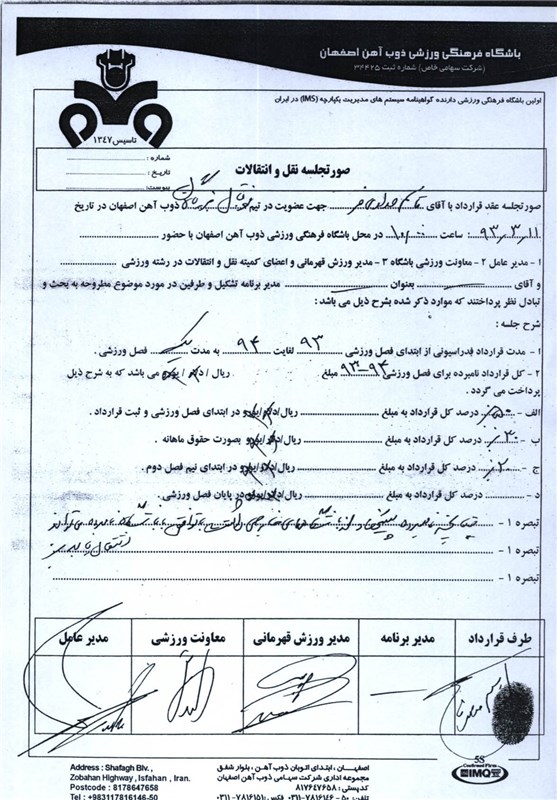 باشگاه فرهنگی ورزشی ذوب آهن اصفهان
(شرکت سهامی خاص) شماره ثبت ۳۴۴۲۵
اولین باشگاه فرهنگی ورزشی دارنده گواهینامه سیستم های مدیریت یکپارچه (IMS) در ایران
تاسیس ۱۳۴۷
شماره :
تاریخ :
پیوست:
صورتجلسه نقل و انتقالات
صورتجلسه عقد قرارداد با آقای قاسم حدادی فر جهت عضویت در تیم فوتبال بزرگسال ذوب آهن اصفهان در تاریخ
۹۳،۳،۱۱ ساعت ۱۰:۰۰ در محل باشگاه فرهنگی ورزشی ذوب آهن اصفهان با حضور
۱ - مدیر عامل ۲ - معاونت ورزشی باشگاه ۳ - مدیر ورزش قهرمانی و اعضای کمیته نقل و انتقالات در رشته ورزشی
و آقای بعنوان مدیر برنامه تشکیل و طرفین در مورد موضوع مطروحه به بحث و
تبادل نظر پرداختند که موارد ذکر شده بشرح ذیل می باشد:
شرح جلسه :
۱ - مدت قرارداد فدراسیونی از ابتدای فصل ورزشی ۹۳ لغایت ۹۴ به مدت یک فصل ورزشی .
۲ - کل قرارداد نامبرده برای فصل ورزشی ۹۴-۹۳ مبلغ ریال / دلار / یورو می باشد که به شرح ذیل
پرداخت می گردد .
الف - ۵۰٪ درصد کل قرارداد به مبلغ ریال/دلار/یورو در ابتدای فصل ورزشی و ثبت قرارداد .
ب - ۳۰٪ درصد کل قرارداد به مبلغ ریال/دلار/یورو بصورت حقوق ماهانه .
ج - ۲۰٪ درصد کل قرارداد به مبلغ ریال/دلار/یورو در ابتدای نیم فصل دوم .
د - درصد کل قرارداد به مبلغ ریال/دلار/یورو در پایان فصل ورزشی .
تبصره ۱ - چنانچه نامبرده پیشنهادی از باشگاه های خارجی داشت با توافق باشگاه نامبرده می تواند
تبصره ۱ - انتقال یابد
تبصره ۱ -
طرف قرارداد
مدیر برنامه
مدیر ورزش قهرمانی
معاونت ورزشی
مدیر عامل
5S
Confirmed Firm
IMQ
Address : Shafagh Blv. ,
Zobahan Highway , Isfahan , Iran.
Postcode : 8178647658
Tel : +983117816146-50
اصفهـــان ، ابتدای اتوبان ذوب آهن ، بلوار شفق
مجموعه اداری شرکت سهامی ذوب آهن اصفهان
کدپستی : ۸۱۷۸۶۴۷۶۵۸
تلفن: ۵۰ - ۷۸۱۶۱۴۶-۰۳۱۱ فکس: ۷۸۱۶۱۵۱-۰۳۱۱